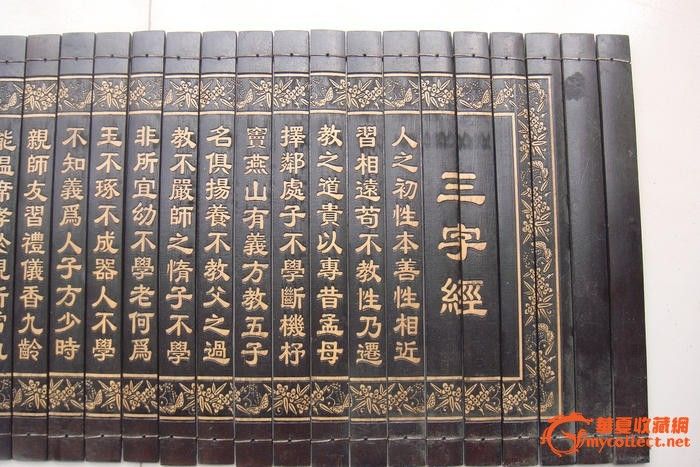 三字經
人之初性本善性相近
習相遠苟不教性乃遷
教之道貴以專昔孟母
擇鄰處子不學斷機杼
竇燕山有義方教五子
名俱揚養不教父之過
教不嚴師之惰子不學
非所宜幼不學老何爲
王不琢不成器人不學
不知義爲人子方少時
親師友習禮儀香九齡
能溫席孝於親所當
華夏收藏網
mycollect.net